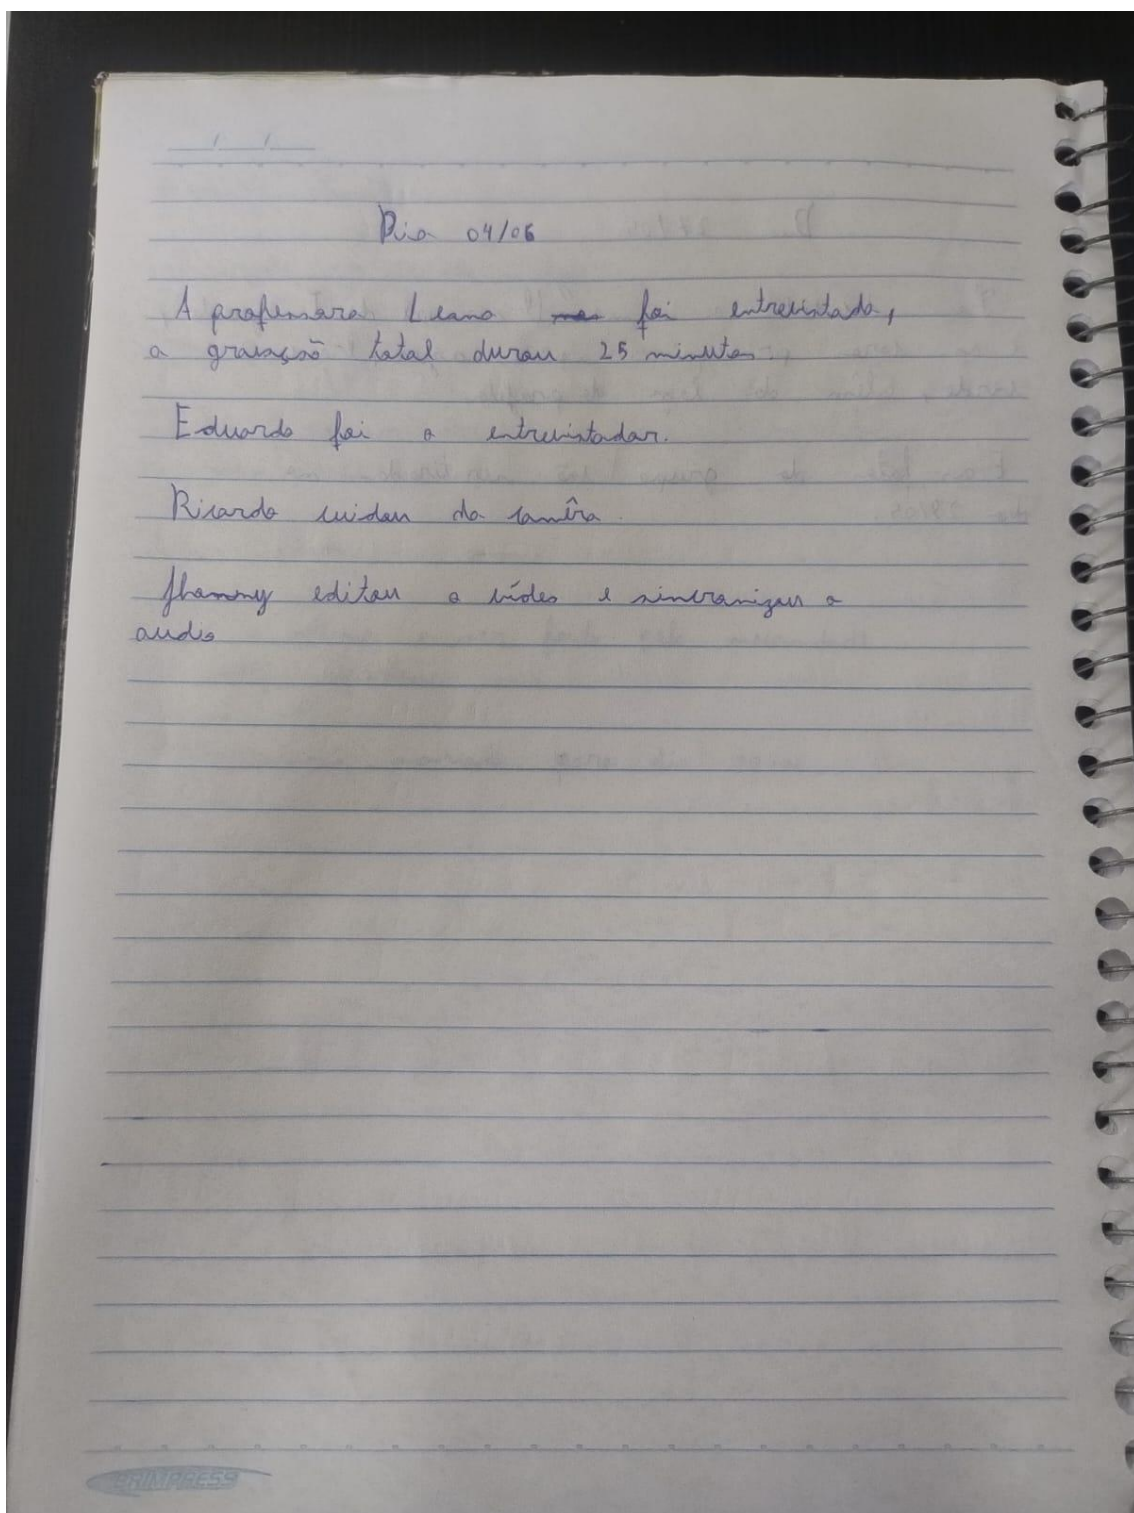 Dia 04/06
A professora Leana foi entrevistada,
a gravação total durou 25 minutos.
Eduardo foi o entrevistador.
Ricardo cuidou da camêra.
Jhammy editou o vídeo e sincronizou o
audio
GRIMPRESS